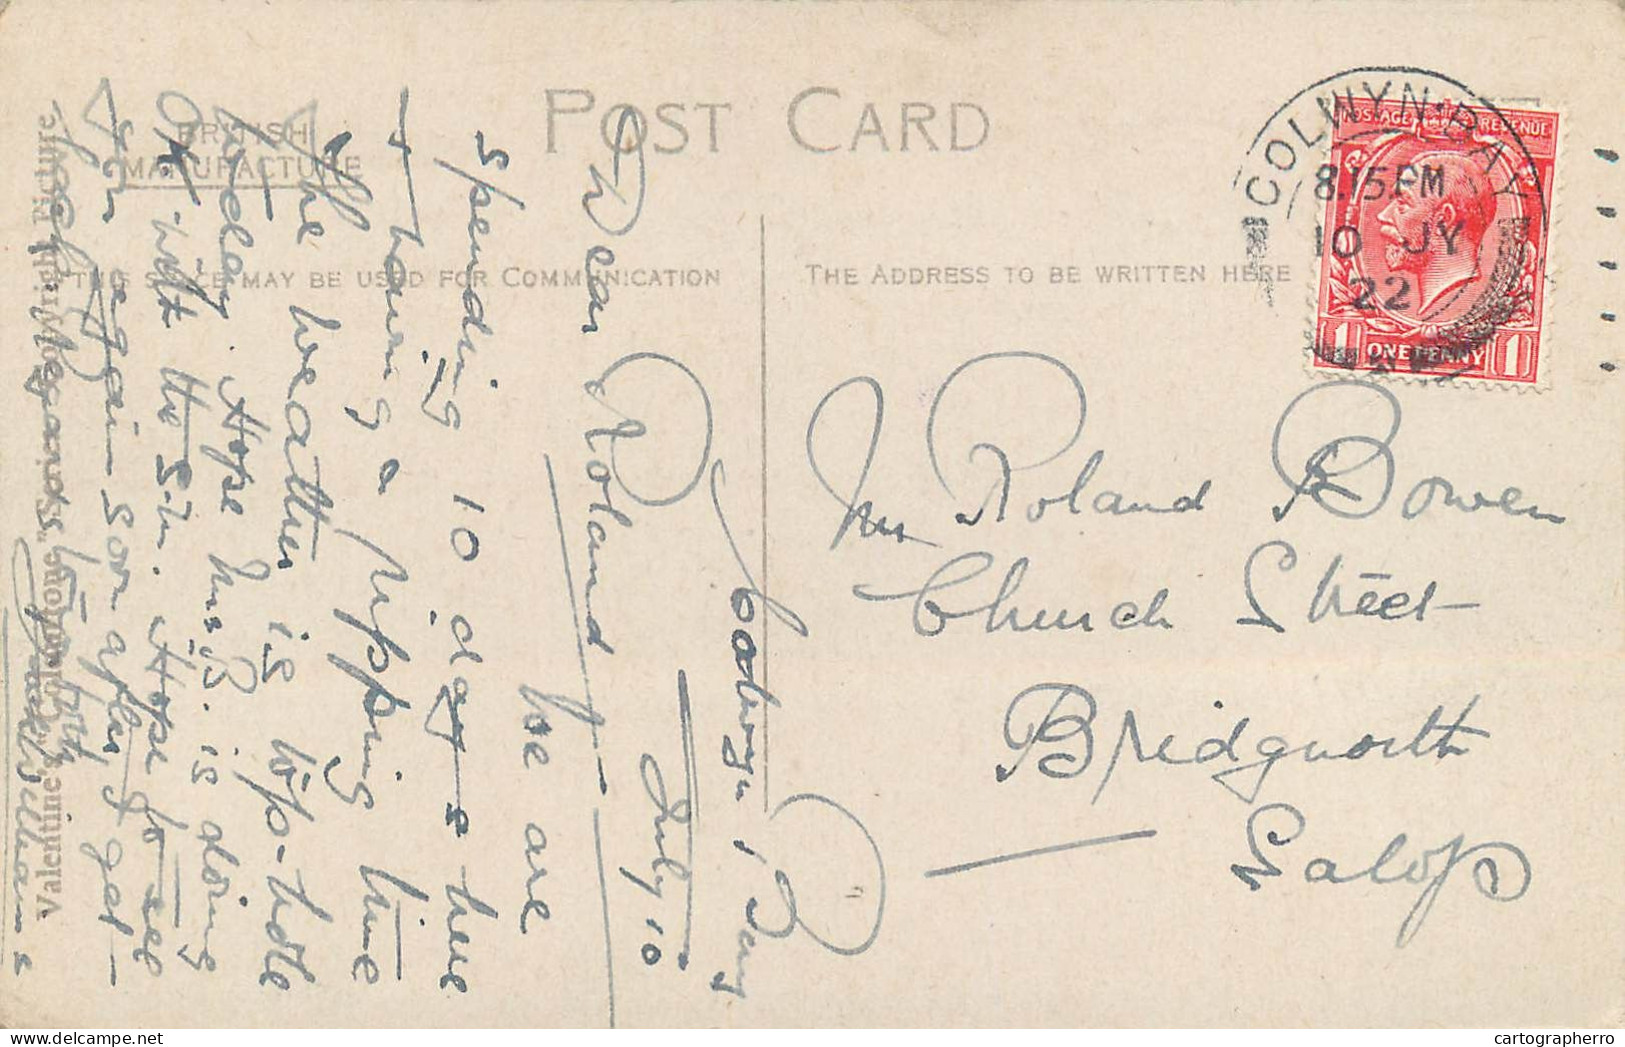 POST CARD
BRITISH
MANUFACTURE
THIS SPACE MAY BE USED FOR COMMUNICATION
THE ADDRESS TO BE WRITTEN HERE
COLWYN·BAY
8.15PM
10 JY
22
POSTAGE REVENUE
1 ONE PENNY 1
Colwyn Bay
July 10
Dear Roland
We are
spending 10 days here
& having a ripping time
The weather is top-hole
today. Hope Mrs. B. is doing
O.K. with the S.in. Hope to see
you again soon after I get
back. Regards to both
Williams
Mr Roland Bowen
Church Street
Bridgnorth
Salop
Valentine's "Colourtone" Series Copyright Picture
cartographerro